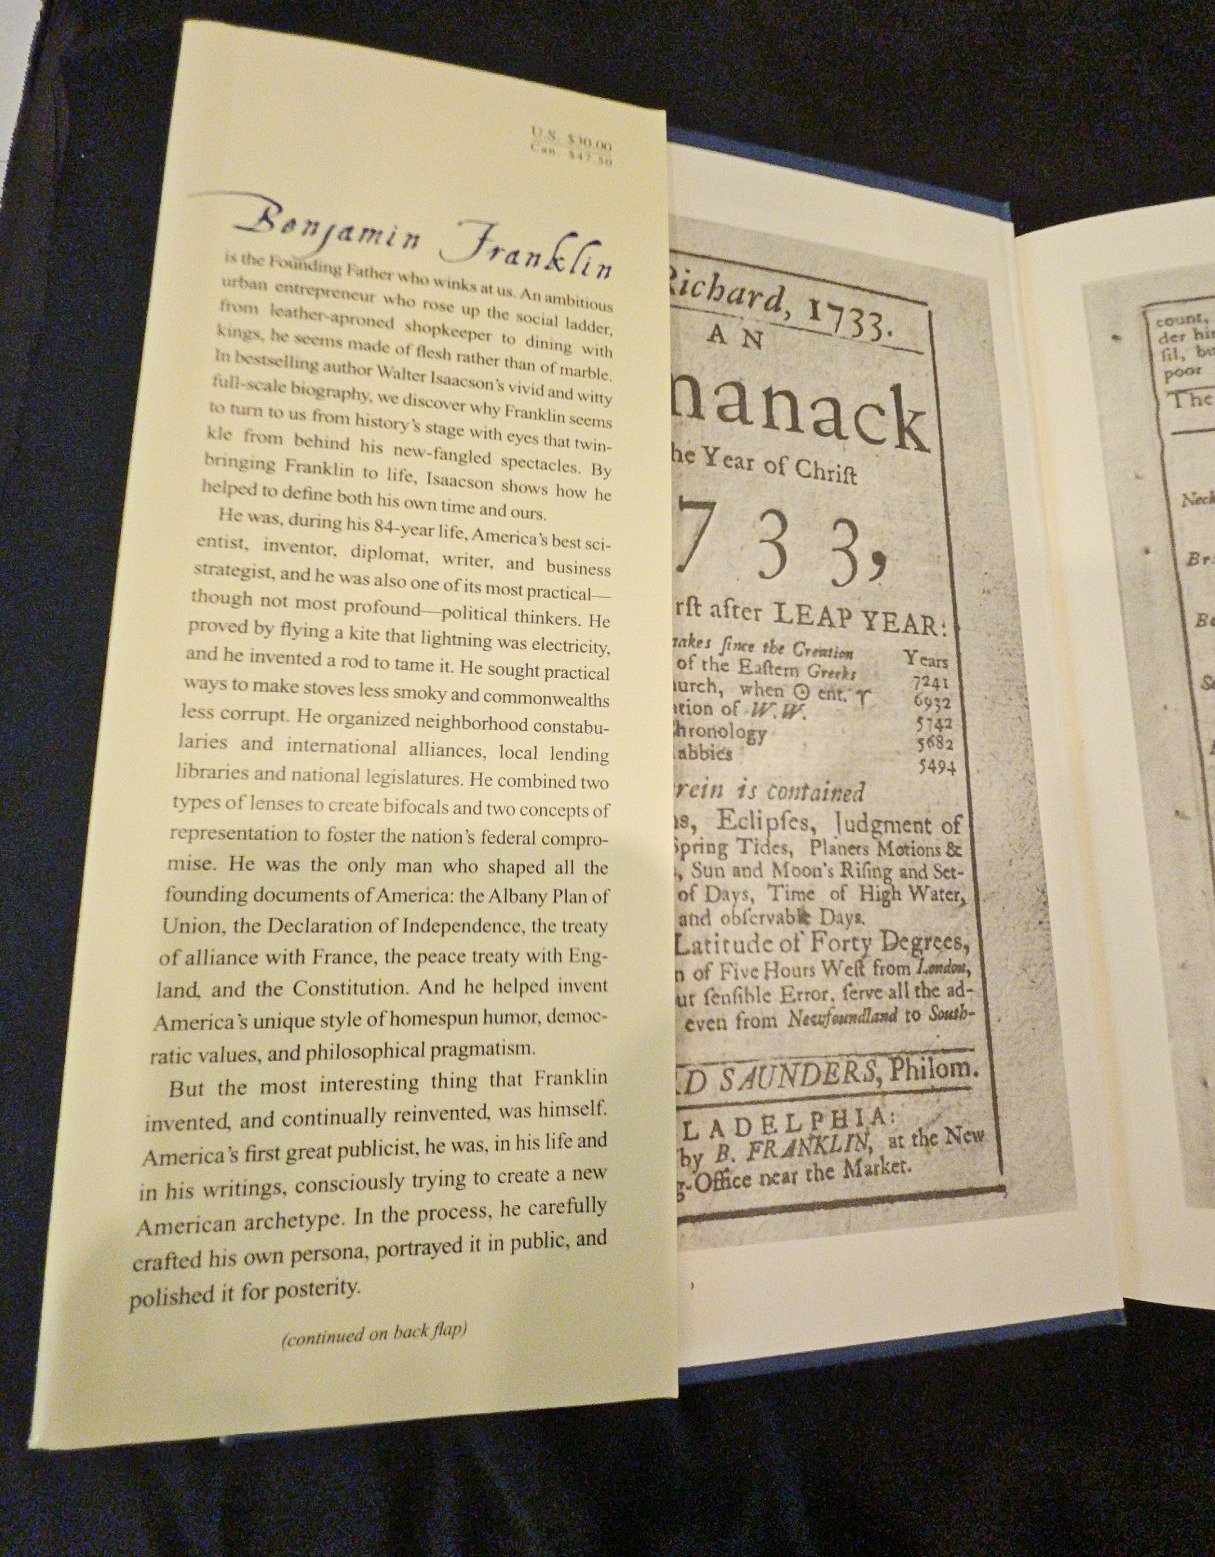 U.S. $30.00
Can. $47.50
Benjamin Franklin
is the Founding Father who winks at us. An ambitious
urban entrepreneur who rose up the social ladder,
from leather-aproned shopkeeper to dining with
kings, he seems made of flesh rather than of marble.
In bestselling author Walter Isaacson's vivid and witty
full-scale biography, we discover why Franklin seems
to turn to us from history's stage with eyes that twin-
kle from behind his new-fangled spectacles. By
bringing Franklin to life, Isaacson shows how he
helped to define both his own time and ours.
He was, during his 84-year life, America's best sci-
entist, inventor, diplomat, writer, and business
strategist, and he was also one of its most practical—
though not most profound—political thinkers. He
proved by flying a kite that lightning was electricity,
and he invented a rod to tame it. He sought practical
ways to make stoves less smoky and commonwealths
less corrupt. He organized neighborhood constabu-
laries and international alliances, local lending
libraries and national legislatures. He combined two
types of lenses to create bifocals and two concepts of
representation to foster the nation's federal compro-
mise. He was the only man who shaped all the
founding documents of America: the Albany Plan of
Union, the Declaration of Independence, the treaty
of alliance with France, the peace treaty with Eng-
land, and the Constitution. And he helped invent
America's unique style of homespun humor, democ-
ratic values, and philosophical pragmatism.
But the most interesting thing that Franklin
invented, and continually reinvented, was himself.
America's first great publicist, he was, in his life and
in his writings, consciously trying to create a new
American archetype. In the process, he carefully
crafted his own persona, portrayed it in public, and
polished it for posterity.
(continued on back flap)
Richard, 1733.
AN
manack
he Year of Chriſt
733,
rſt after LEAP YEAR:
makes ſince the Creation Years
of the Eaſtern Greeks 7241
hurch, when ☉ ent. ♈ 6932
ation of W.W. 5742
hronology 5682
abbies 5494
rein is contained
ns, Eclipſes, Judgment of
Spring Tides, Planets Motions &
, Sun and Moon's Riſing and Set-
of Days, Time of High Water,
and obſervable Days.
Latitude of Forty Degrees,
n of Five Hours Weſt from London,
ut ſenſible Error, ſerve all the ad-
even from Newfoundland to South-
RD SAUNDERS, Philom.
LADELPHIA:
by B. FRANKLIN, at the New
g-Office near the Market.
count,
der hi
ſil, bu
poor
The
Neck
Br
Be